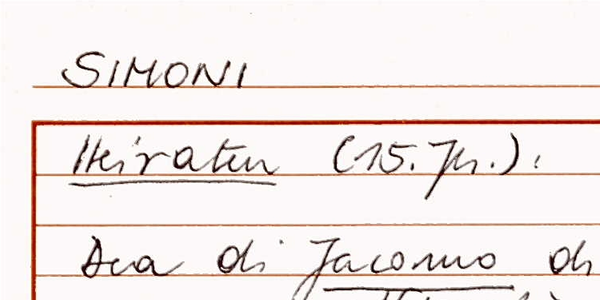 SIMONI
Heiraten (15. Jh.):
di Jacomo di